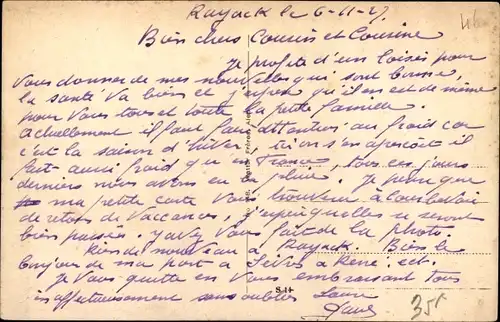 Rayack le 6-11-27
Bien chers Cousin et Cousine
Je profite d'un loisir pour
vous donner de mes nouvelles qui sont bonne,
la santé va bien et j'espère qu'il en est de même
pour vous tous et toute la petite famille.
Actuellement il faut faire attention au froid car
c'est la saison d'hiver, et on s'en aperçoit il
fait aussi froid qu'en France, tous ces jours
derniers nous avons eu la pluie. Je pense que
ma petite carte vous trouvera à Courbevoie
de retour de vaccances, j'espère qu'elles se seront
bien passées. y avez vous fait de la photo.
Rien de nouveau à Rayack. Bien le
bonjour de ma part à René; ect.
Je vous quitte en vous embrassant tous
affectueusement sans oublier
S-14
35f